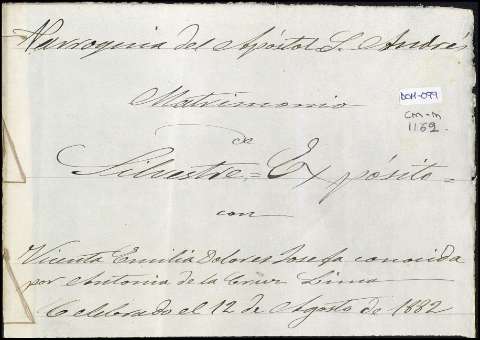 Parroquia del Apóstol S. Andrés
DOM-099
Matrimonio
CM-M
1152
de
Silvestre = Expósito =
con
Vicenta Emilia Dolores Josefa conocida
por Antonia de la Cruz Lima
Celebrado el 12 de Agosto de 1882